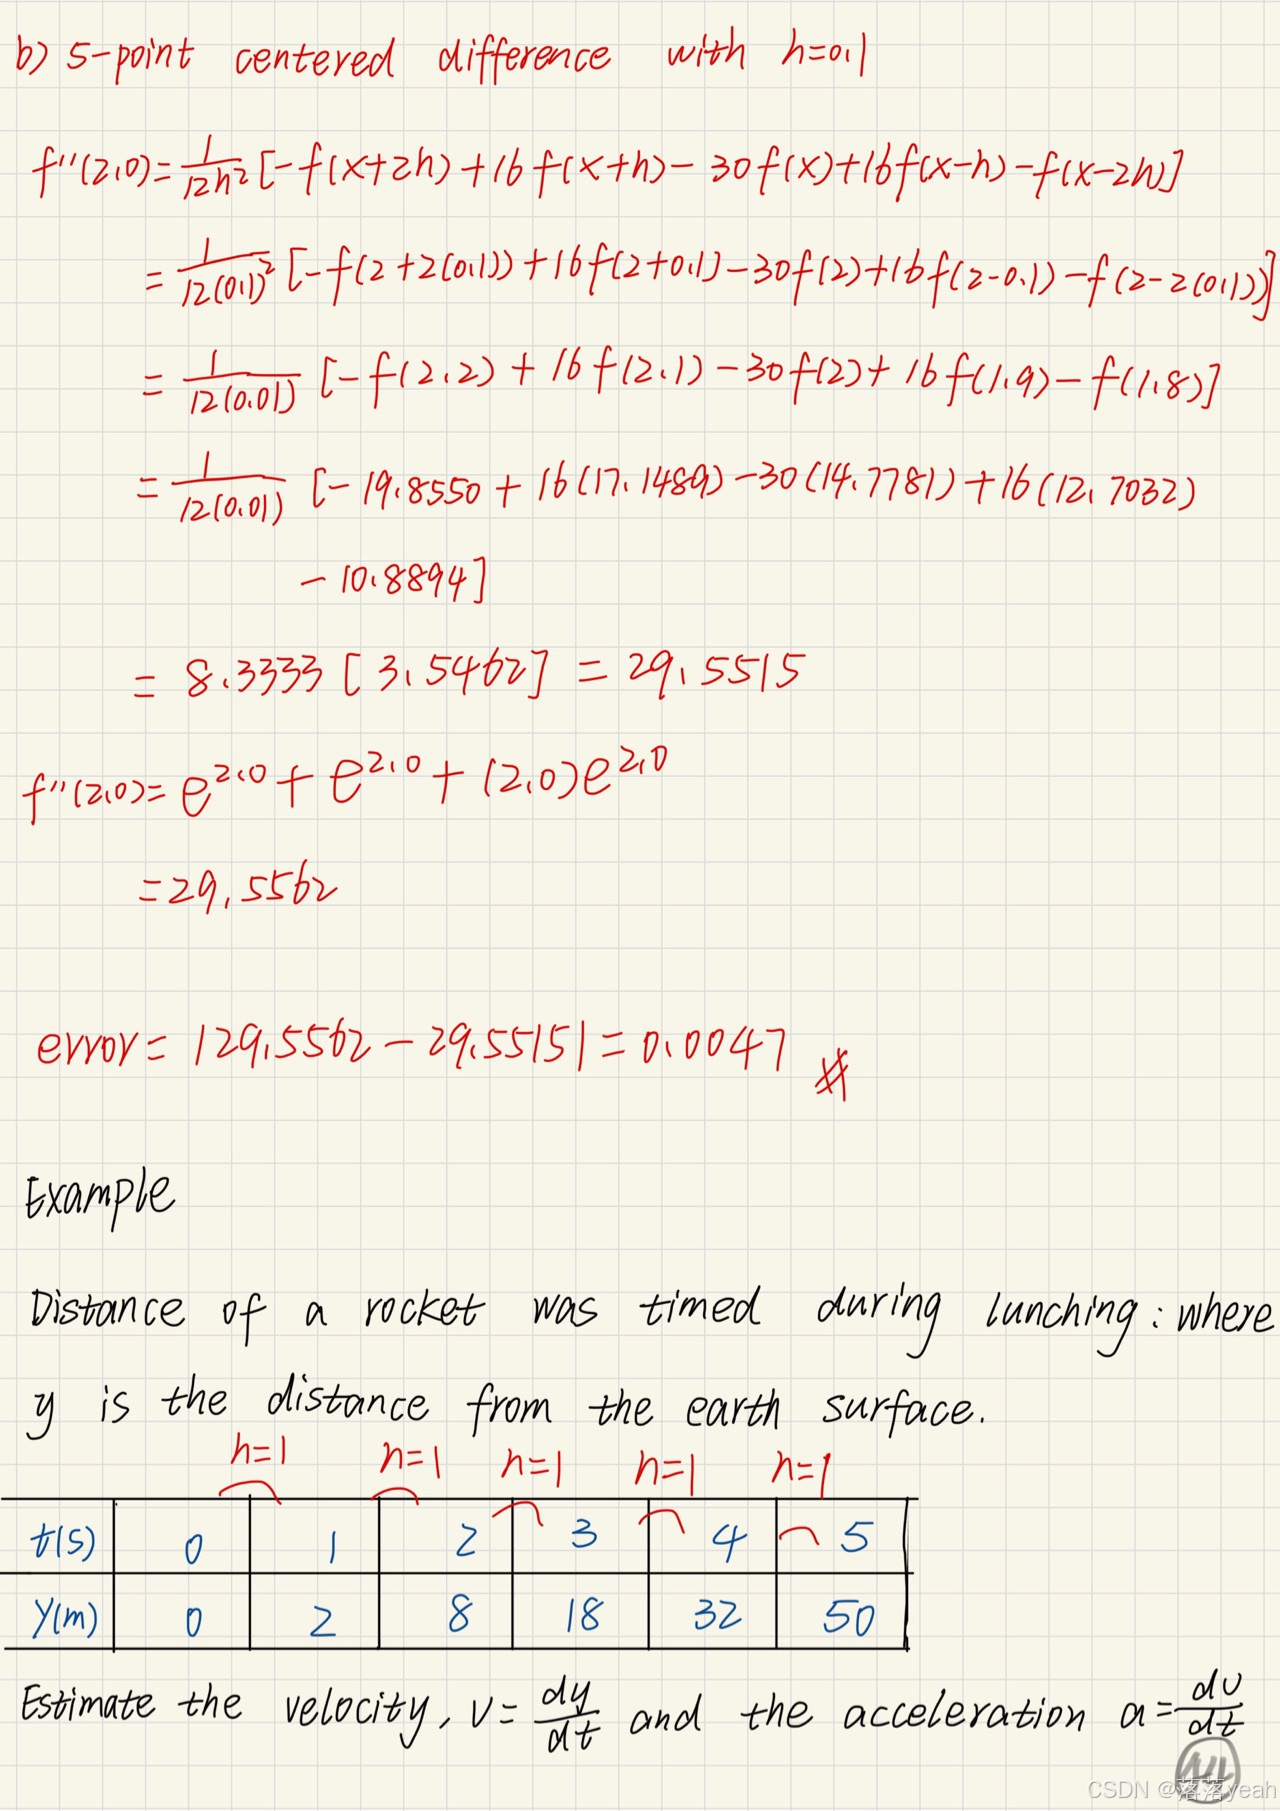 b) 5-point centered difference with h=0.1
f''(2.0)= 1/12h² [-f(x+2h)+16f(x+h)-30f(x)+16f(x-h)-f(x-2h)]
= 1/12(0.1)² [-f(2+2(0.1))+16f(2+0.1)-30f(2)+16f(2-0.1)-f(2-2(0.1))]
= 1/12(0.01) [-f(2.2)+16f(2.1)-30f(2)+16f(1.9)-f(1.8)]
= 1/12(0.01) [-19.8550+16(17.1489)-30(14.7781)+16(12.7032)
-10.8894]
= 8.3333 [3.5462] = 29.5515
f''(2.0)= e^2.0 + e^2.0 + (2.0)e^2.0
=29.5562
error= |29.5562-29.5515|=0.0047 #
Example
Distance of a rocket was timed during lunching: where
y is the distance from the earth surface.
h=1 h=1 h=1 h=1 h=1
t(s) 0 1 2 3 4 5
y(m) 0 2 8 18 32 50
Estimate the velocity, v= dy/dt and the acceleration a= dv/dt
CSDN @落落yeah